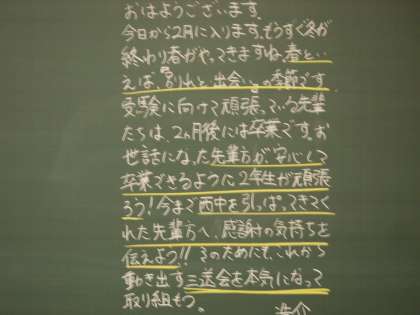 おはようございます。
今日から2月に入ります。もうすぐ冬が
終わり春がやってきますね。春とい
えば“別れと出会い”の季節です。
受験に向けて頑張っている先輩
たちは、2ヵ月後には卒業です。お
世話になった先輩方が、安心して
卒業できるように2年生が頑張
ろう!今まで西中を引っぱってきてく
れた先輩方へ、感謝の気持ちを
伝えよう!!そのためにも、これから
動き出す三送会を本気になって
取り組もう。